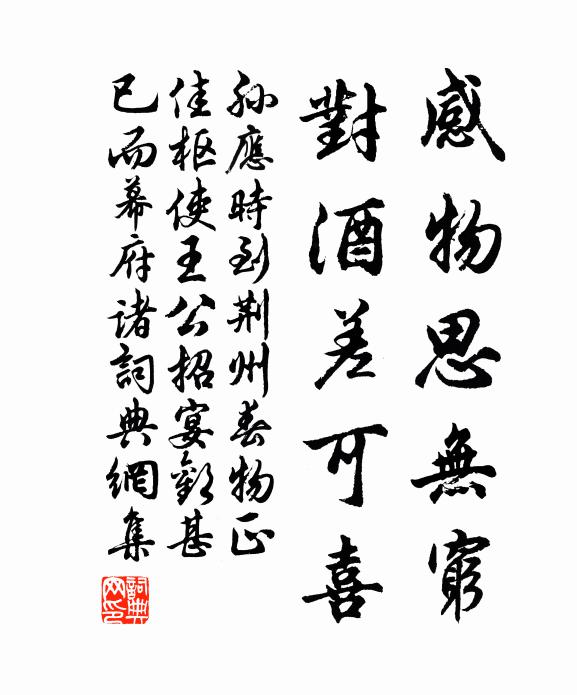 感物思無窮
對酒差可喜
孫應時到荆州春物正
佳枢使王公招宴歡甚
已而幕府诸詞典網集
詞典网印